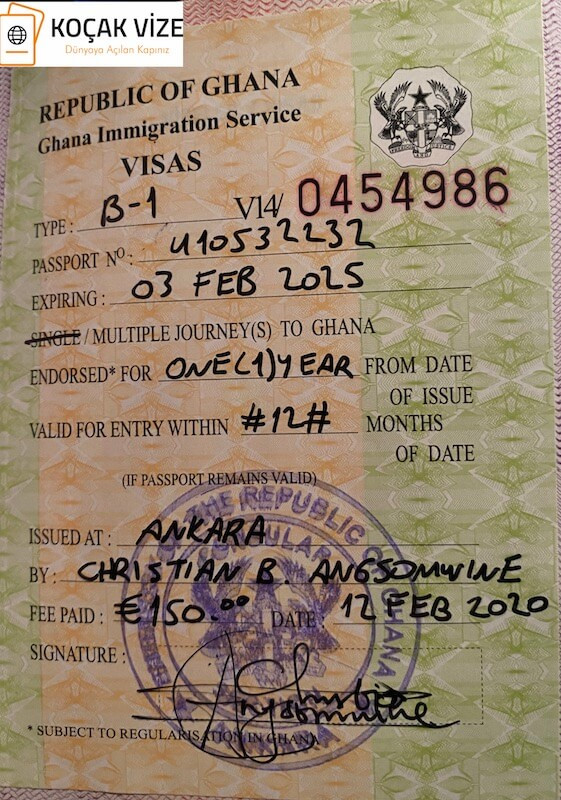 KOÇAK VİZE
Dünyaya Açılan Kapınız
REPUBLIC OF GHANA
Ghana Immigration Service
VISAS
TYPE: B-1 V14/ 0454986
PASSPORT NO: U10532232
EXPIRING: 03 FEB 2025
SINGLE / MULTIPLE JOURNEY(S) TO GHANA
ENDORSED* FOR ONE(1)YEAR FROM DATE
OF ISSUE
VALID FOR ENTRY WITHIN #12# MONTHS
OF DATE
(IF PASSPORT REMAINS VALID)
ISSUED AT: ANKARA
BY: CHRISTIAN B. ANGSOMWINE
FEE PAID: €150.00 DATE: 12 FEB 2020
SIGNATURE:
* SUBJECT TO REGULARISATION IN GHANA
THE REPUBLIC OF GHANA
CONSULAR